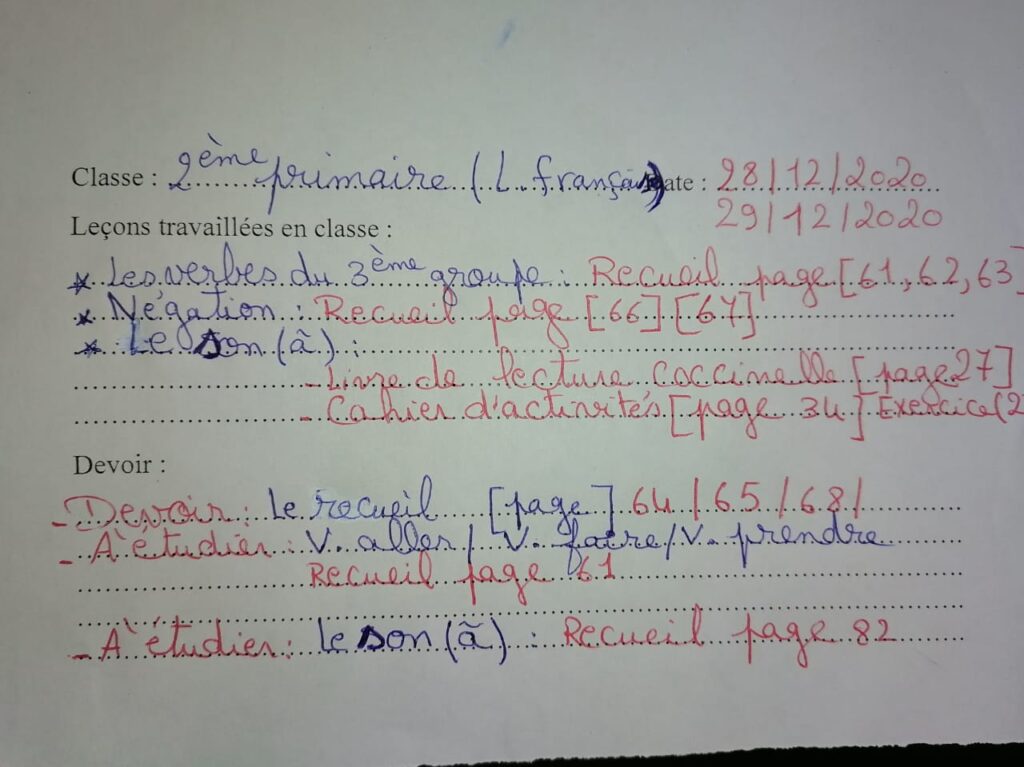 Classe : 2ème primaire (L. français) ate : 28/12/2020
29/12/2020
Leçons travaillées en classe :
* Les verbes du 3ème groupe : Recueil page [61, 62, 63]
* Négation : Recueil page [66] [67]
* Le son (ã) :
- Livre de lecture coccinelle [page 27]
- Cahier d'activités [page 34] Exercice (2
Devoir :
- Devoir : Le recueil [page] 64 / 65 / 68 /
- A étudier : V. aller / V. faire / V. prendre
Recueil page 61
- A étudier : le son (ã) : Recueil page 82